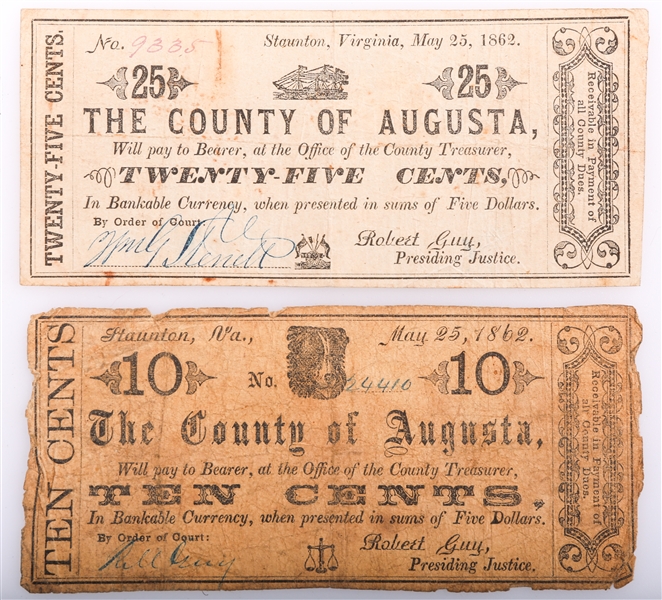 TWENTY-FIVE CENTS.
No. 9335 Staunton, Virginia, May 25, 1862.
25 25
THE COUNTY OF AUGUSTA,
Will pay to Bearer, at the Office of the County Treasurer,
TWENTY-FIVE CENTS,
In Bankable Currency, when presented in sums of Five Dollars.
By Order of Court
Robert Guy,
Presiding Justice.
Receivable in Payment of
all County Dues.
TEN CENTS
Staunton, Va., May 25, 1862.
10 No. 24410 10
The County of Augusta,
Will pay to Bearer, at the Office of the County Treasurer,
TEN CENTS
In Bankable Currency, when presented in sums of Five Dollars.
By Order of Court:
Robert Guy,
Presiding Justice.
Receivable in Payment of
all County Dues.